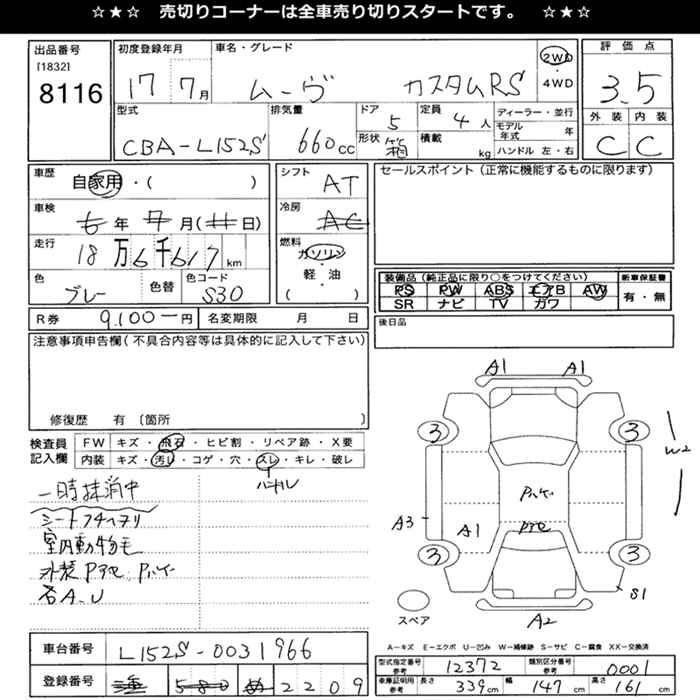 ☆★☆ 売切りコーナーは全車売り切りスタートです。 ☆★☆
出品番号 初度登録年月 車名・グレード 評価点
[1832]
8116 17 7月 ムーヴ カスタムRS 2WD・4WD 3.5
型式 排気量 ドア 定員 ディーラー・並行 外装 内装
CBA-L152S 660cc 5 4人 モデル年式 年 C C
形状 箱 積載 kg ハンドル 左・右
車歴 自家用・( ) シフト AT セールスポイント(正常に機能するものに限ります)
車検 年 7月( 日) 冷房 AC
走行 18万6千617km 燃料 ガソリン・軽・油( )
色 グレー 色替 色コード S30
装備品(純正品に限り○をつけてください) 新車保証書
PS PW ABS エアB AW 有・無
SR ナビ TV カワ
R券 9,100-円 名変期限 月 日 後日品
注意事項申告欄(不具合内容等は具体的に記入して下さい)
修復歴 有〔箇所 〕
検査員記入欄 FW キズ・飛石・ヒビ割・リペア跡・X要
内装 キズ・汚れ・コゲ・穴・スレ・キレ・破レ
ハンドル
一時抹消中
シート
室内動物毛
外装
各A.U
A1 A1
3 3
W2
A3 A1
3 3
S1
スペア A2
A-キズ E-エクボ U-凹み W-補修跡 S-サビ C-腐食 XX-交換済
車台番号 L152S-0031966
型式指定番号参考 12372 類別区分番号参考 0001
登録番号 580 2209
車庫証明用参考 長さ 339cm 幅 147cm 高さ 161cm